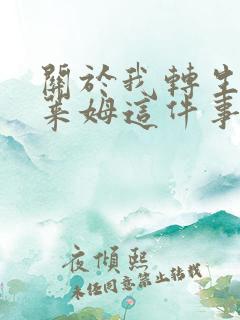 關於我轉生
萊姆這件事
夜傾熙
未任同意禁止转载